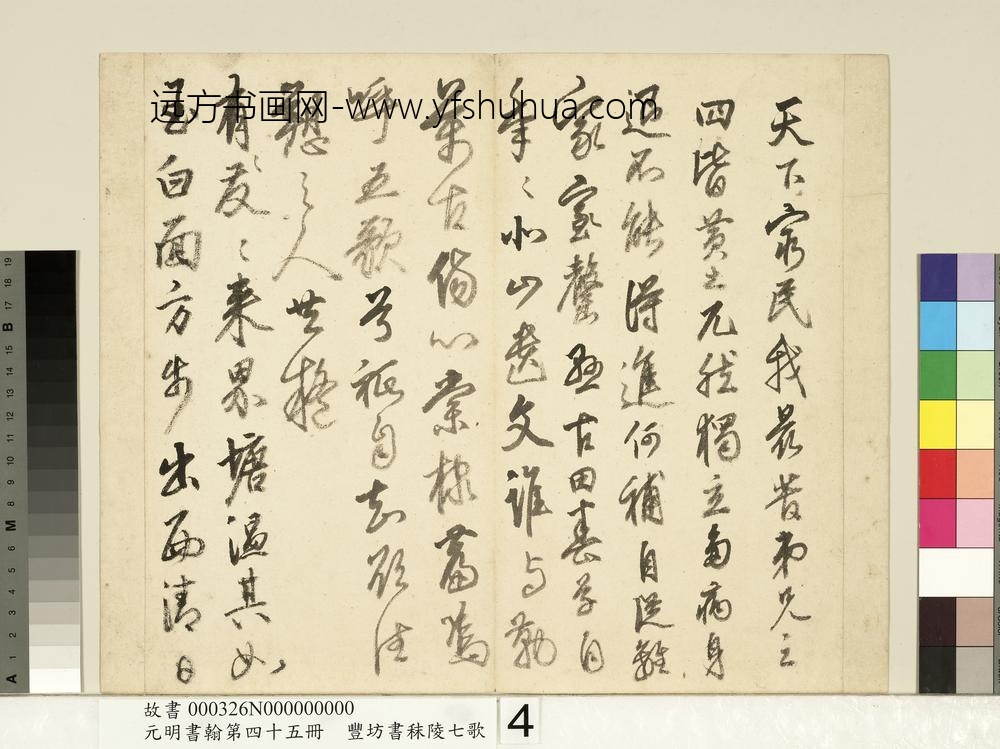 天下窮民我最苦弟兄三
四皆黃土兀然獨立多病身
退不能得進何補自從離
家室罄懸古田春草自
年〻北山遺文誰與勒
萬古傷心棠棣篇嗚
呼五歌兮祗自知欲往
之人世稀
有友〻來界塘溫其如
玉白面方步出西清日
远方书画网-www.yfshuhua.com
故書 000326N000000000
元明書翰第四十五冊 豐坊書秣陵七歌
4
A 1 2 3 4 5 6 M 8 9 10 11 12 13 14 15 B 17 18 19